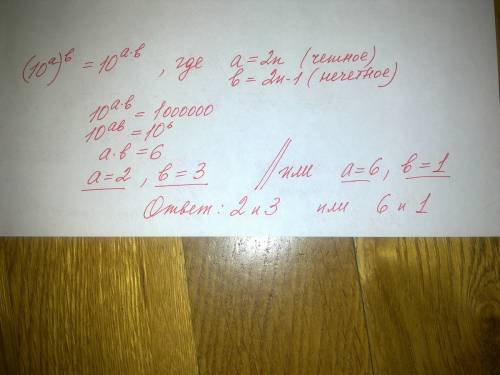 (10^a)^b = 10^{a·b}, где a = 2n (четное)
b = 2n-1 (нечетное)
10^{a·b} = 1000000
10^{ab} = 10^6
a·b = 6
a = 2, b = 3 // или a = 6, b = 1
Ответ: 2 и 3 или 6 и 1